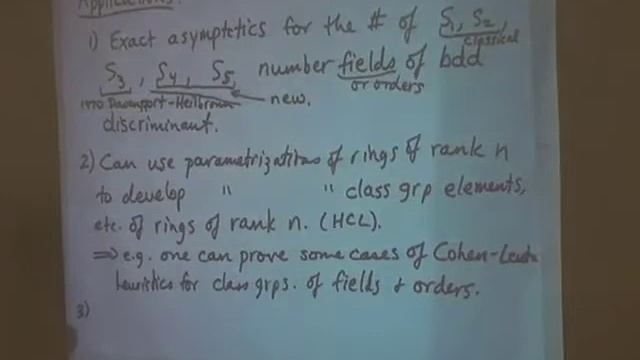 Applications:
1) Exact asymptotics for the # of S₁, S₂,
classical
S₃, S₄, S₅ number fields of bdd
or orders
1970 Davenport-Heilbronn
new.
discriminant.
2) Can use parametrizations of rings of rank n
to develop " " class grp elements,
etc. of rings of rank n. (HCL).
⇒ e.g. one can prove some cases of Cohen-Lenstra
heuristics for class grps. of fields & orders.
3)